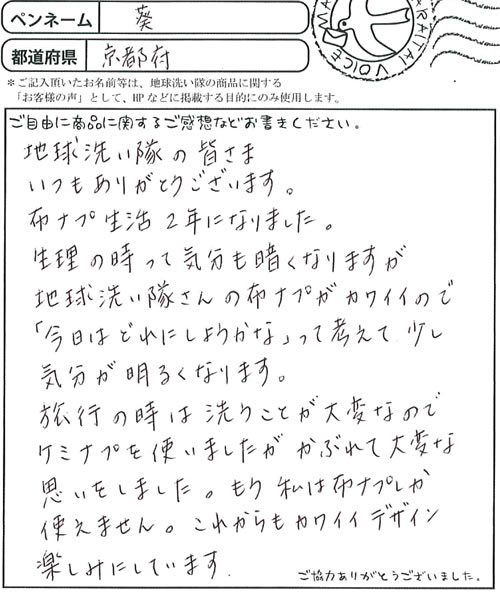 ペンネーム 葵
都道府県 京都府
VOICE
＊ご記入頂いたお名前等は、地球洗い隊の商品に関する
「お客様の声」として、HPなどに掲載する目的にのみ使用します。
ご自由に商品に関するご感想などお書きください。
地球洗い隊の皆さま
いつもありがとうございます。
布ナプ生活2年になりました。
生理の時って気分も暗くなりますが
地球洗い隊さんの布ナプがカワイイので
「今日はどれにしようかな」って考えて少し
気分が明るくなります。
旅行の時は洗うことが大変なので
ケミナプを使いましたがかぶれて大変な
思いをしました。もう私は布ナプしか
使えません。これからもカワイイデザイン
楽しみにしています.
ご協力ありがとうございました。